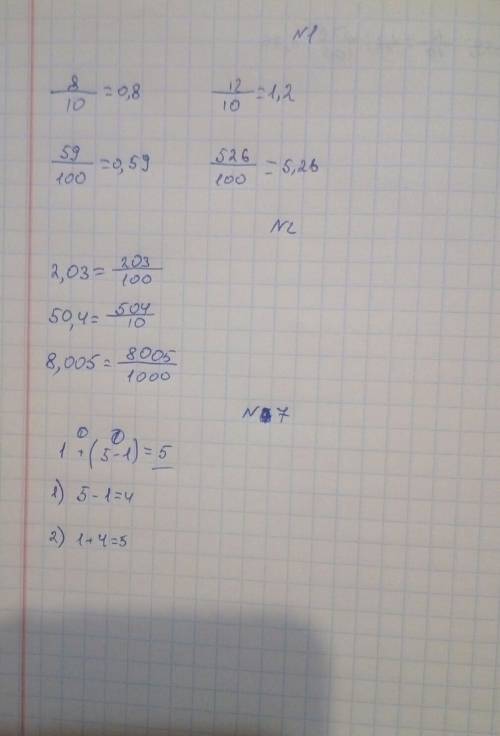 N1
8/10 = 0,8   12/10 = 1,2
59/100 = 0,59   526/100 = 5,26
N2
2,03 = 203/100
50,4 = 504/10
8,005 = 8005/1000
N 7
1 + (5 - 1) = 5
1) 5 - 1 = 4
2) 1 + 4 = 5